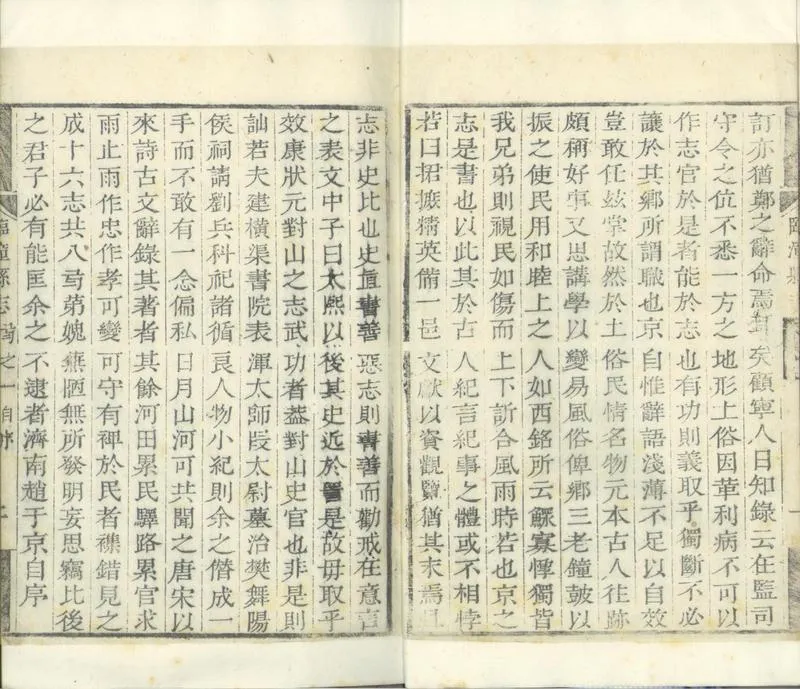 訂亦猶鄭之辭命焉爾矣顧寧人日知錄云在監司
守令之位不悉一方之地形土俗因革利病不可以
作志官於是者能於志也有功則義取乎獨斷不必
讓於其鄉所謂職也京自惟辭語淺薄不足以自效
豈敢任玆掌故然於土俗民情名物元本古人往跡
頗稱好事又思講學以變易風俗俾鄉三老鐘皷以
振之使民用和睦上之人如西銘所云鰥寡惸獨皆
我兄弟則視民如傷而上下訢合風雨時若也京之
志是書也以此其於古人紀言紀事之體或不相悖
若曰招摭精英備一邑文献以資觀覽猶其末焉且
志非史比也史直書善惡志則書善而勸戒在意言
之表文中子曰太熙以後其史近於是故毋取乎
效康狀元對山之志武功者葢對山史官也非是則
訕若夫建橫渠書院表渾太師段太尉墓治樊舞陽
侯祠請劉兵科祀諸循良人物小紀則余之僭成一
手而不敢有一念偏私日月山河可共聞之唐宋以
來詩古文辭錄其著者其餘河田累民驛路累官求
雨止雨作忠作孝可變可守有裨於民者襍錯見之
成十六志共八弟媿無陋無所發明妄思竊比後
之君子必有能匡余之不逮者濟南趙于京自序
臨潼縣志
之一自序